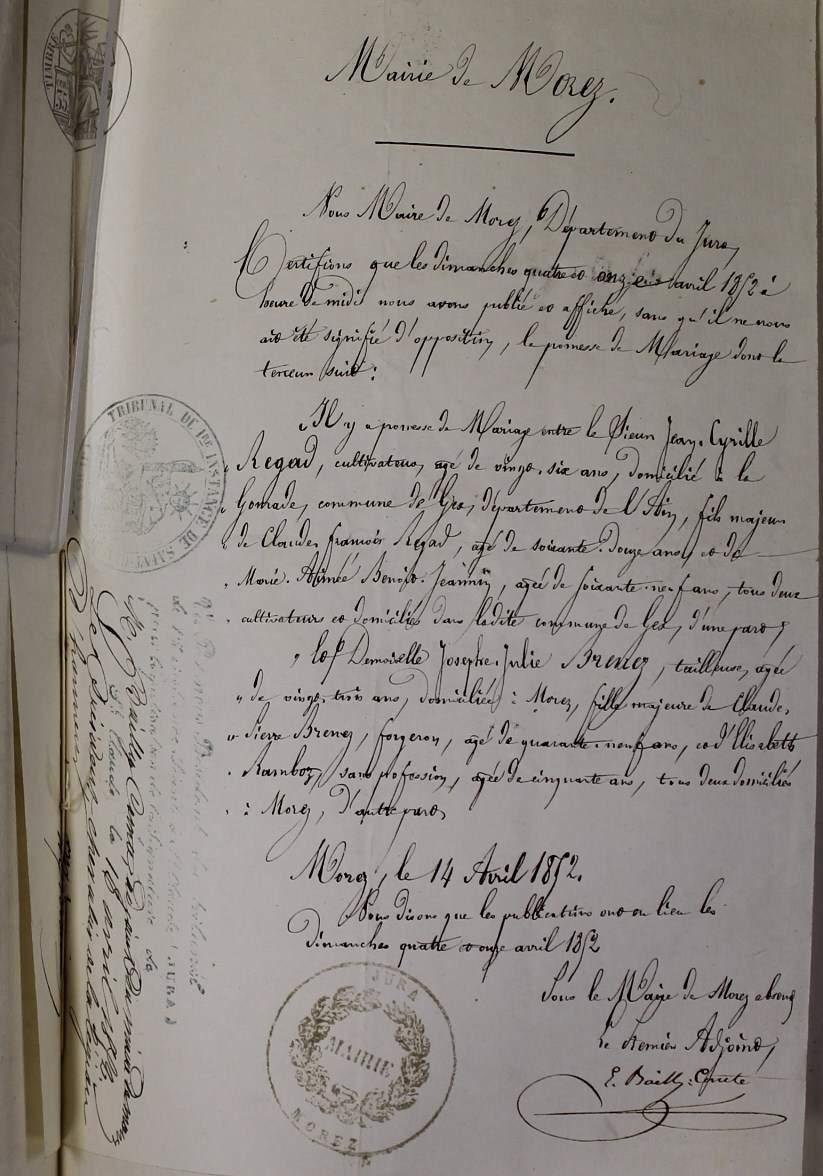 TIMBRE
35
Mairie de Morez.
Nous Maire de Morez, Département du Jura,
Certifions que les dimanches quatre et onze avril 1852 à
heure de midi nous avons publié et affiché, sans qu'il ne nous
ait été signifié d'opposition, la promesse de Mariage dont la
teneur suit:
Il y a promesse de Mariage entre le Sieur Jean-Cyrille
Regad, cultivateur, agé de vingt-six ans, domicilié à la
commune de Gex, département de l'Ain, fils majeur
de Claude-françois Regad, agé de soixante-douze ans, et de
Marie-Aimée Benoit-Jeannin, agée de soixante-neuf ans, tous deux
cultivateurs et domiciliés dans ladite commune de Gex, d'une part,
" Et Demoiselle Josephe-Julie Brenez, tailleuse, agée
" de vingt-trois ans, domiciliée à Morez, fille majeure de Claude-
" Pierre Brenez, forgeron, agé de quarante-neuf ans, et d'Elisabeth
Ramboz, sans profession, agée de cinquante ans, tous deux domiciliés
à Morez, d'autre part.
Morez, le 14 Avril 1852.
Nous disons que les publications ont eu lieu les
Dimanches quatre et onze avril 1852
Pour le Maire de Morez absent
le Premier Adjoint,
E. Bailly-Comte
JURA
MAIRIE
MOREZ
TRIBUNAL DE 1re INSTANCE DE SAINT-
Bailly Comte
St Claude, le 18 avril 1852
Le Président, chevalier de la légion
D'honneur